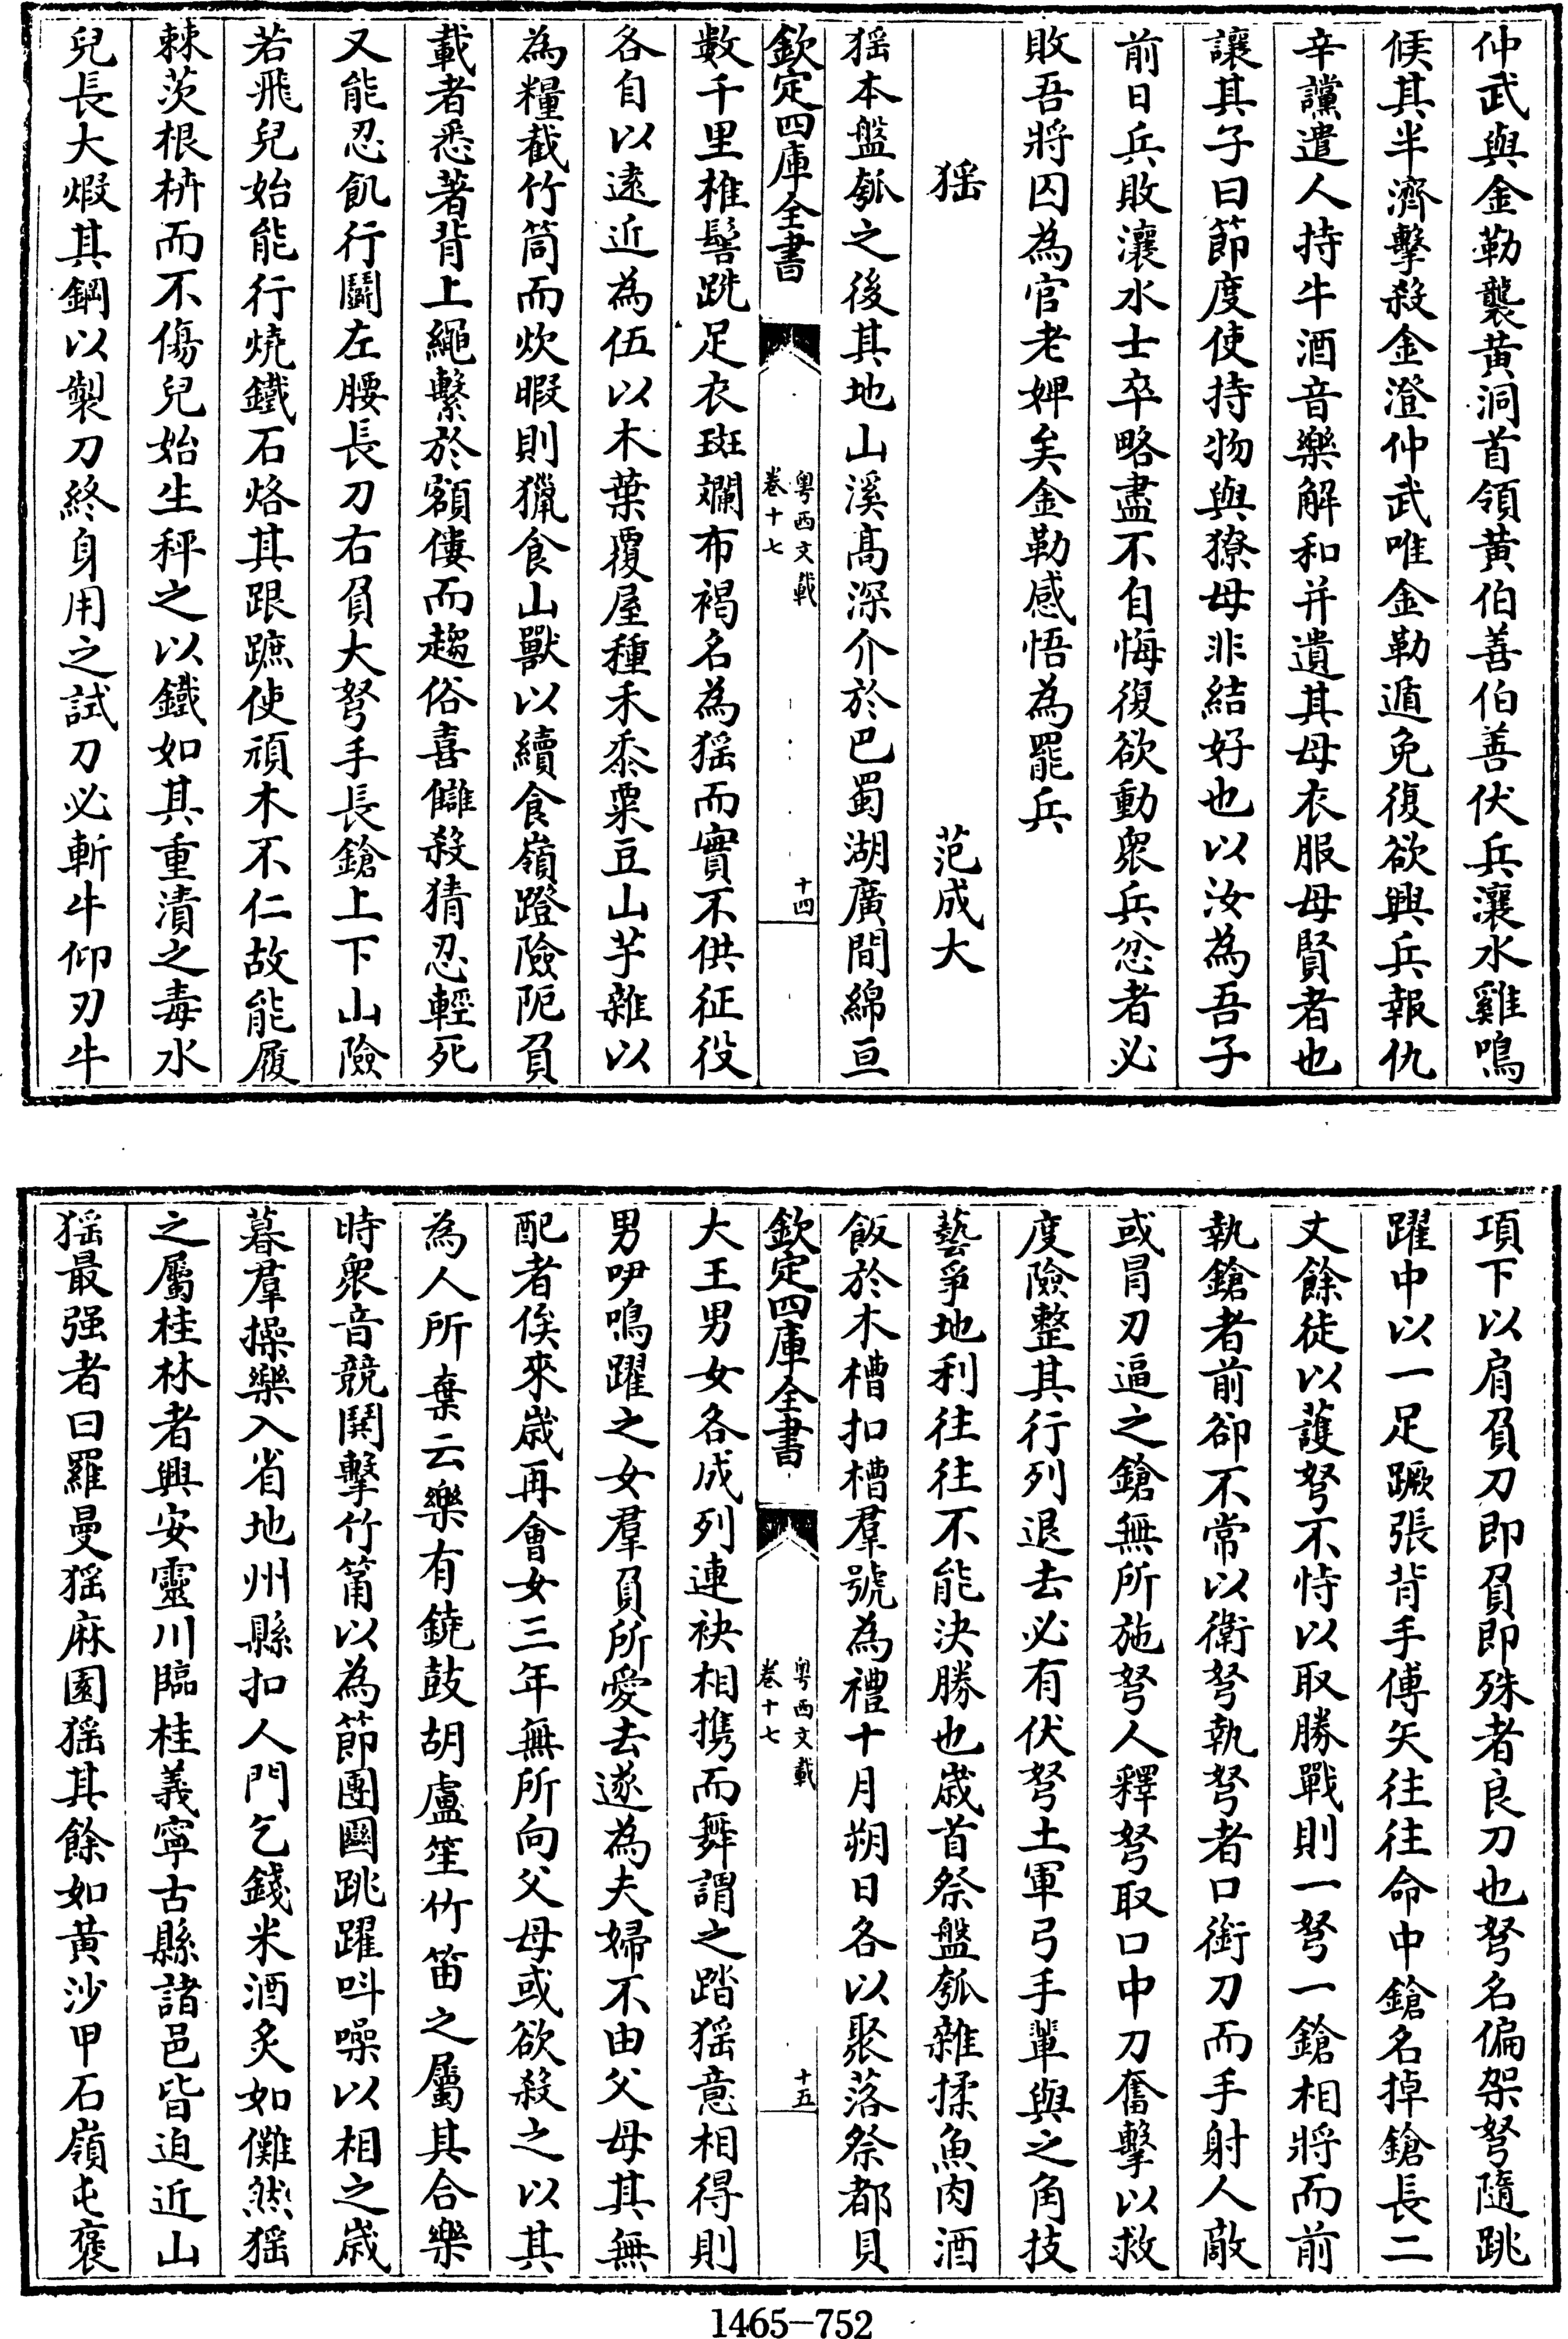 仲武與金勒襲黃洞首領黄伯善伯善伏兵瀼水雞鳴
候其半濟擊殺金澄仲武唯金勒遁免復欲興兵報仇
辛讜遣人持牛酒音樂解和并遺其母衣服母賢者也
讓其子曰節度使持物與獠母非結好也以汝為吾子
前日兵敗瀼水士卒略盡不自悔復欲動衆兵忿者必
敗吾將囚為官老婢矣金勒感悟為罷兵
猺　范成大
猺本盤瓠之後其地山溪髙深介於巴蜀湖廣間綿亘
欽定四庫全書
粤西文載
卷十七
十四
數千里椎髻跣足衣斑斕布褐名為猺而實不供征役
各自以逺近為伍以木葉覆屋種禾黍粟豆山芋雜以
為糧截竹筒而炊暇則獵食山獸以續食嶺蹬險阨負
載者悉著背上繩繫於額僂而趨俗喜讎殺猜忍輕死
又能忍飢行鬭左腰長刀右負大弩手長鎗上下山險
若飛兒始能行燒鐵石烙其跟蹠使頑木不仁故能履
棘茨根枿而不傷兒始生秤之以鐵如其重漬之毒水
兒長大煆其鋼以製刀終身用之試刀必斬牛仰刃牛
項下以肩負刀即負即殊者良刀也弩名偏架弩隨跳
躍中以一足蹶張背手傅矢往往命中鎗名掉鎗長二
丈餘徒以護弩不恃以取勝戰則一弩一鎗相將而前
執鎗者前卻不常以衛弩執弩者口銜刀而手射人敵
或冒刃逼之鎗無所施弩人釋弩取口中刀奮擊以救
度險整其行列退去必有伏弩土軍弓手輩與之角技
藝爭地利往往不能決勝也歳首祭盤瓠雜揉魚肉酒
飯於木槽扣槽羣號為禮十月朔日各以聚落祭都貝
欽定四庫全書
粤西文載
卷十七
十五
大王男女各成列連袂相携而舞謂之踏猺意相得則
男咿鳴躍之女羣負所愛去遂為夫婦不由父母其無
配者俟來歳再會女三年無所向父母或欲殺之以其
為人所棄云樂有鐃鼓胡盧笙竹笛之屬其合樂
時衆音競鬨擊竹筩以為節團圞跳躍呌噪以相之歳
暮羣操樂入省地州縣扣人門乞錢米酒炙如儺然猺
之屬桂林者興安靈川臨桂義寧古縣諸邑皆迫近山
猺最强者曰羅曼猺麻園猺其餘如黃沙甲石嶺屯褒
1465—752